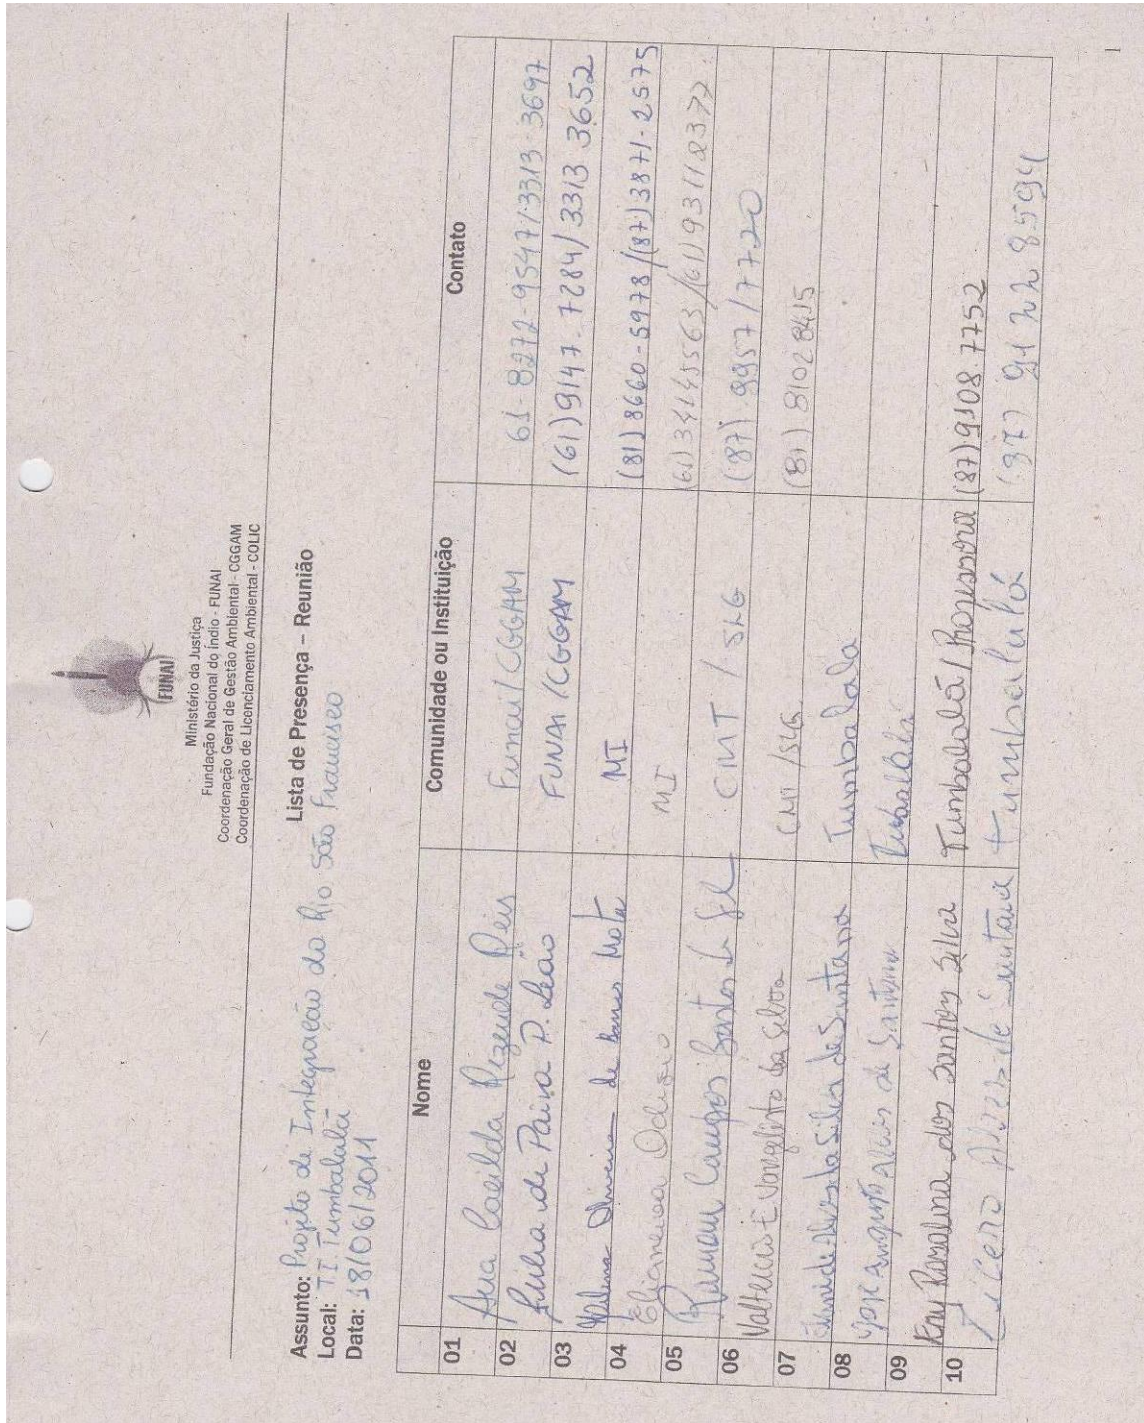 FUNAI
Ministério da Justiça
Fundação Nacional do Índio - FUNAI
Coordenação Geral de Gestão Ambiental - CGGAM
Coordenação de Licenciamento Ambiental - COLIC
Lista de Presença – Reunião
Assunto: Projeto de Integração do Rio São Francisco
Local: TI Tumbalalá
Data: 18/06/2011
Nome Comunidade ou Instituição Contato
01 Ana Cacilda Rezende Reis Funai/CGGAM 61-8272-9547/3313-3697
02 Julia de Paiva P. Leão FUNAI/CGGAM (61)9147-7284/3313.3652
03 Oliveira de Barros Mota MI (81)8660-5978/(87)3871-2575
04 MI (61)34145563/(61)93118372
05 Campos Bastos CMT / SLG (87) 9957/7720
06 da Silva CMT/SLG (81) 81028415
07 da Silva de Santana Tumbalala
08 José Augusto Alves de Santana
09 Rosalina dos Santos Silva Tumbalalá/Professora (87)9108.7752
10 Cicero Alves de Santana tumbalalá (87) 9122 8594
1